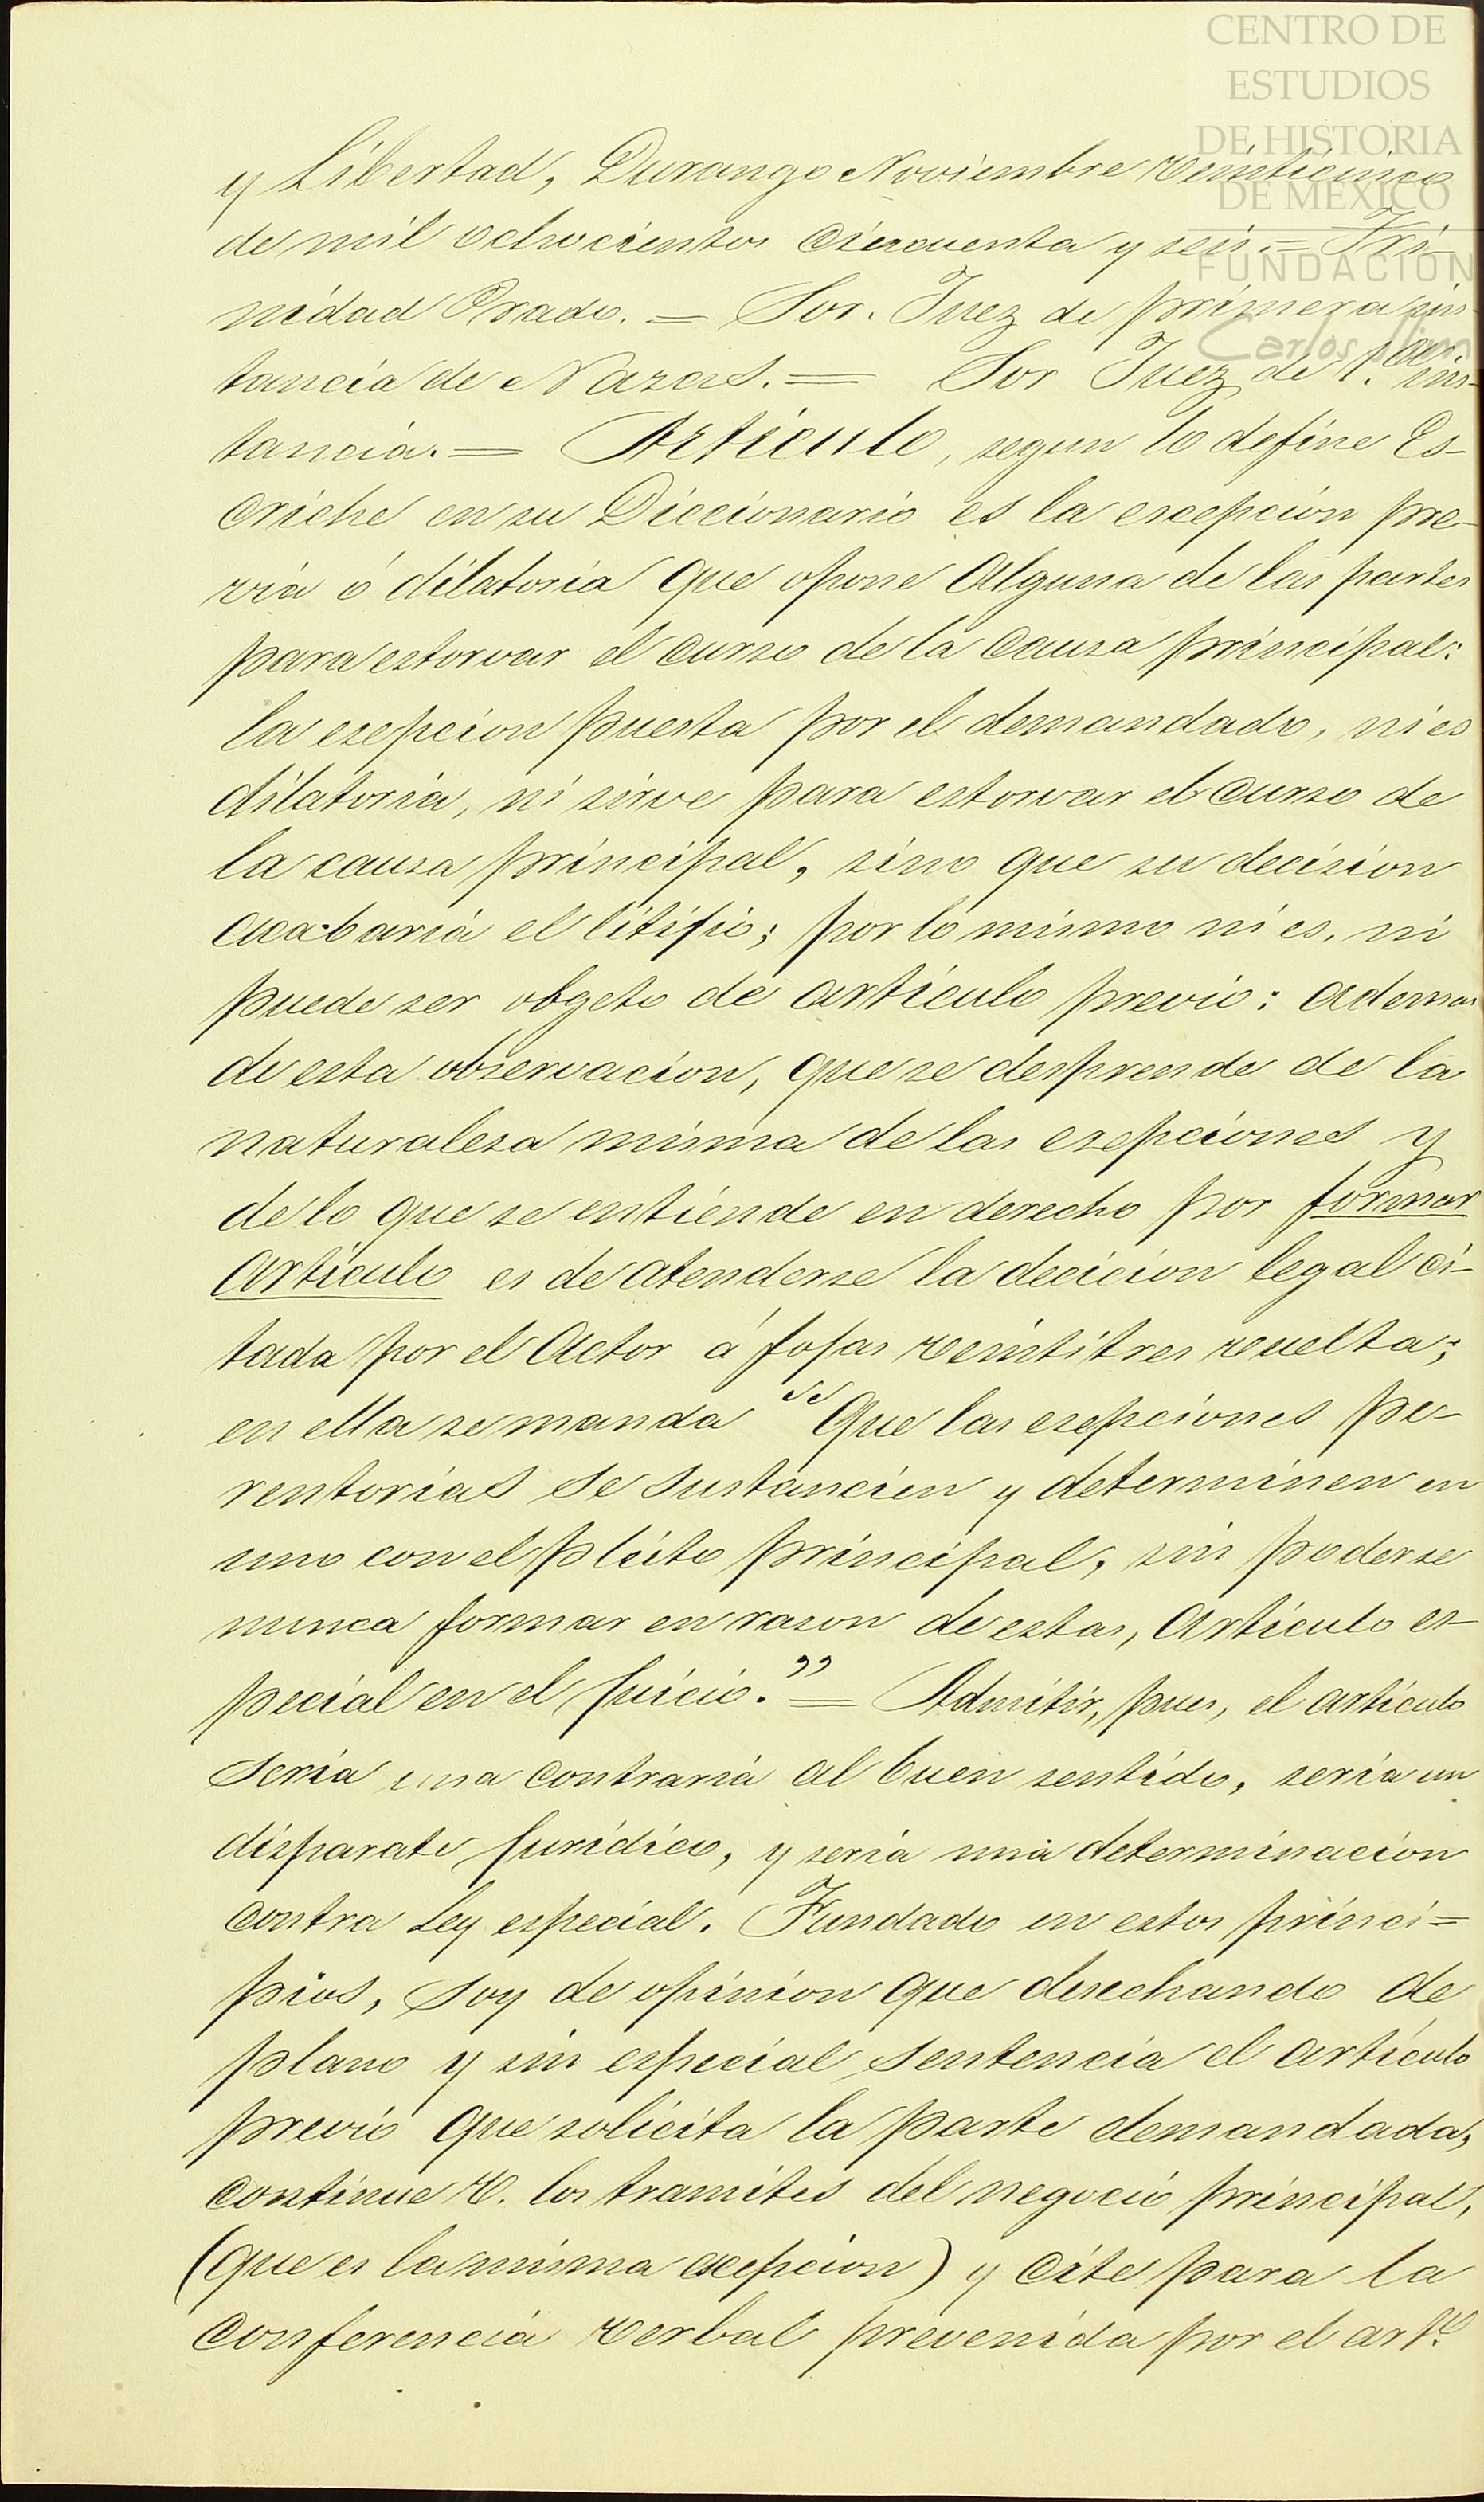 CENTRO DE
ESTUDIOS
DE HISTORIA
DE MEXICO
FUNDACION
Carlos Slim
y Libertad, Durango Noviembre veinticinco
de mil ochocientos cincuenta y seis. = Tri-
nidad Prado. = Sor. Juez de primera ins-
tancia de Nazas. = Sor Juez de 1.ª ins-
tancia. = Artículo, segun lo define Es-
criche en su Diccionario es la escepcion pre-
via ó dilatoria que opone alguna de las partes
para estorvar el curso de la causa principal:
la esepcion puesta por el demandado, ni es
dilatoria, ni sirve para estorvar el curso de
la causa principal, sino que su decision
acabaria el litijio; por lo mismo ni es, ni
puede ser obgeto de artículo previo: ademas
de esta observacion, que se desprende de la
naturalesa misma de las esepciones y
de lo que se entiende en derecho por formar
artículo es de atenderse la decicion legal ci-
tada por el Actor á fojas veintitres vuelta;
en ella se manda "Que las esepciones pe-
rentorias se sustancien y determinen en
uno con el pleito principal, sin poderse
nunca formar en rason de estas, artículo es-
pecial en el juicio." = Admitir, pues, el artículo
seria una contraria al buen sentido, seria un
disparate jurídico, y seria una determinacion
contra Ley especial. Fundado en estos princi=
pios, soy de opinion que desechando de
plano y sin especial sentencia el artículo
previo que solicita la parte demandada,
continue V. los tramites del negocio principal,
(que es la misma esepcion) y cite para la
conferencia verbal prevenida por el artº.